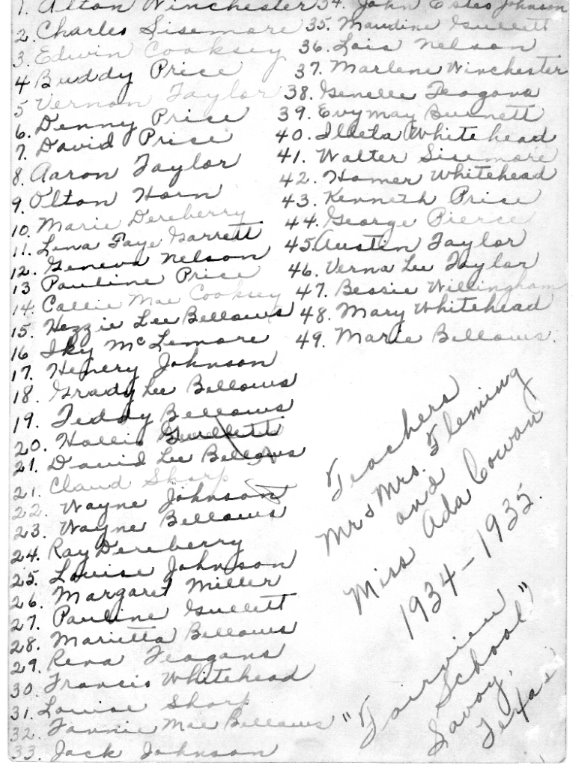 1. Alton Winchester
2. Charles Sisemore
3. Edwin Cooksey
4 Buddy Price
5 Vernon Taylor
6. Denny Price
7. David Price
8. Aaron Taylor
9. Olton Horn
10. Marie Dereberry
11. Lena Faye Garrett
12. Geneva Nelson
13 Pauline Price
14. Callie Mae Cooksey
15. Hozzie Lee Bellows
16. Iky McLemore
17. Henery Johnson
18. Grady Lee Bellows
19. Teddy Bellows
20. Hollis Gullett
21. David Lee Bellows
21. Claud Sharp
22. Wayne Johnson
23. Wayne Bellows
24. Ray Dereberry
25. Louise Johnson
26. Margaret Miller
27. Pauline Gullett
28. Marietta Bellows
29. Rena Teagans
30. Francis Whitehead
31. Louise Sharp
32. Fannie Mae Bellows
33. Jack Johnson
34. John Estes Johnson
35. Maudine Gullett
36. Lois Nelson
37. Marlene Winchester
38. Genelle Teagans
39. Evymay Burnett
40. Illeta Whitehead
41. Walter Sisemore
42. Homer Whitehead
43. Kenneth Price
44. George Pierce
45. Austin Taylor
46. Verna Lee Taylor
47. Bessie Willingham
48. Mary Whitehead
49. Marie Bellows.
Teachers
Mr & Mrs. Fleming
and
Miss Ada Cowan
1934-1935.
"Fairview
School"
Savoy,
Texas